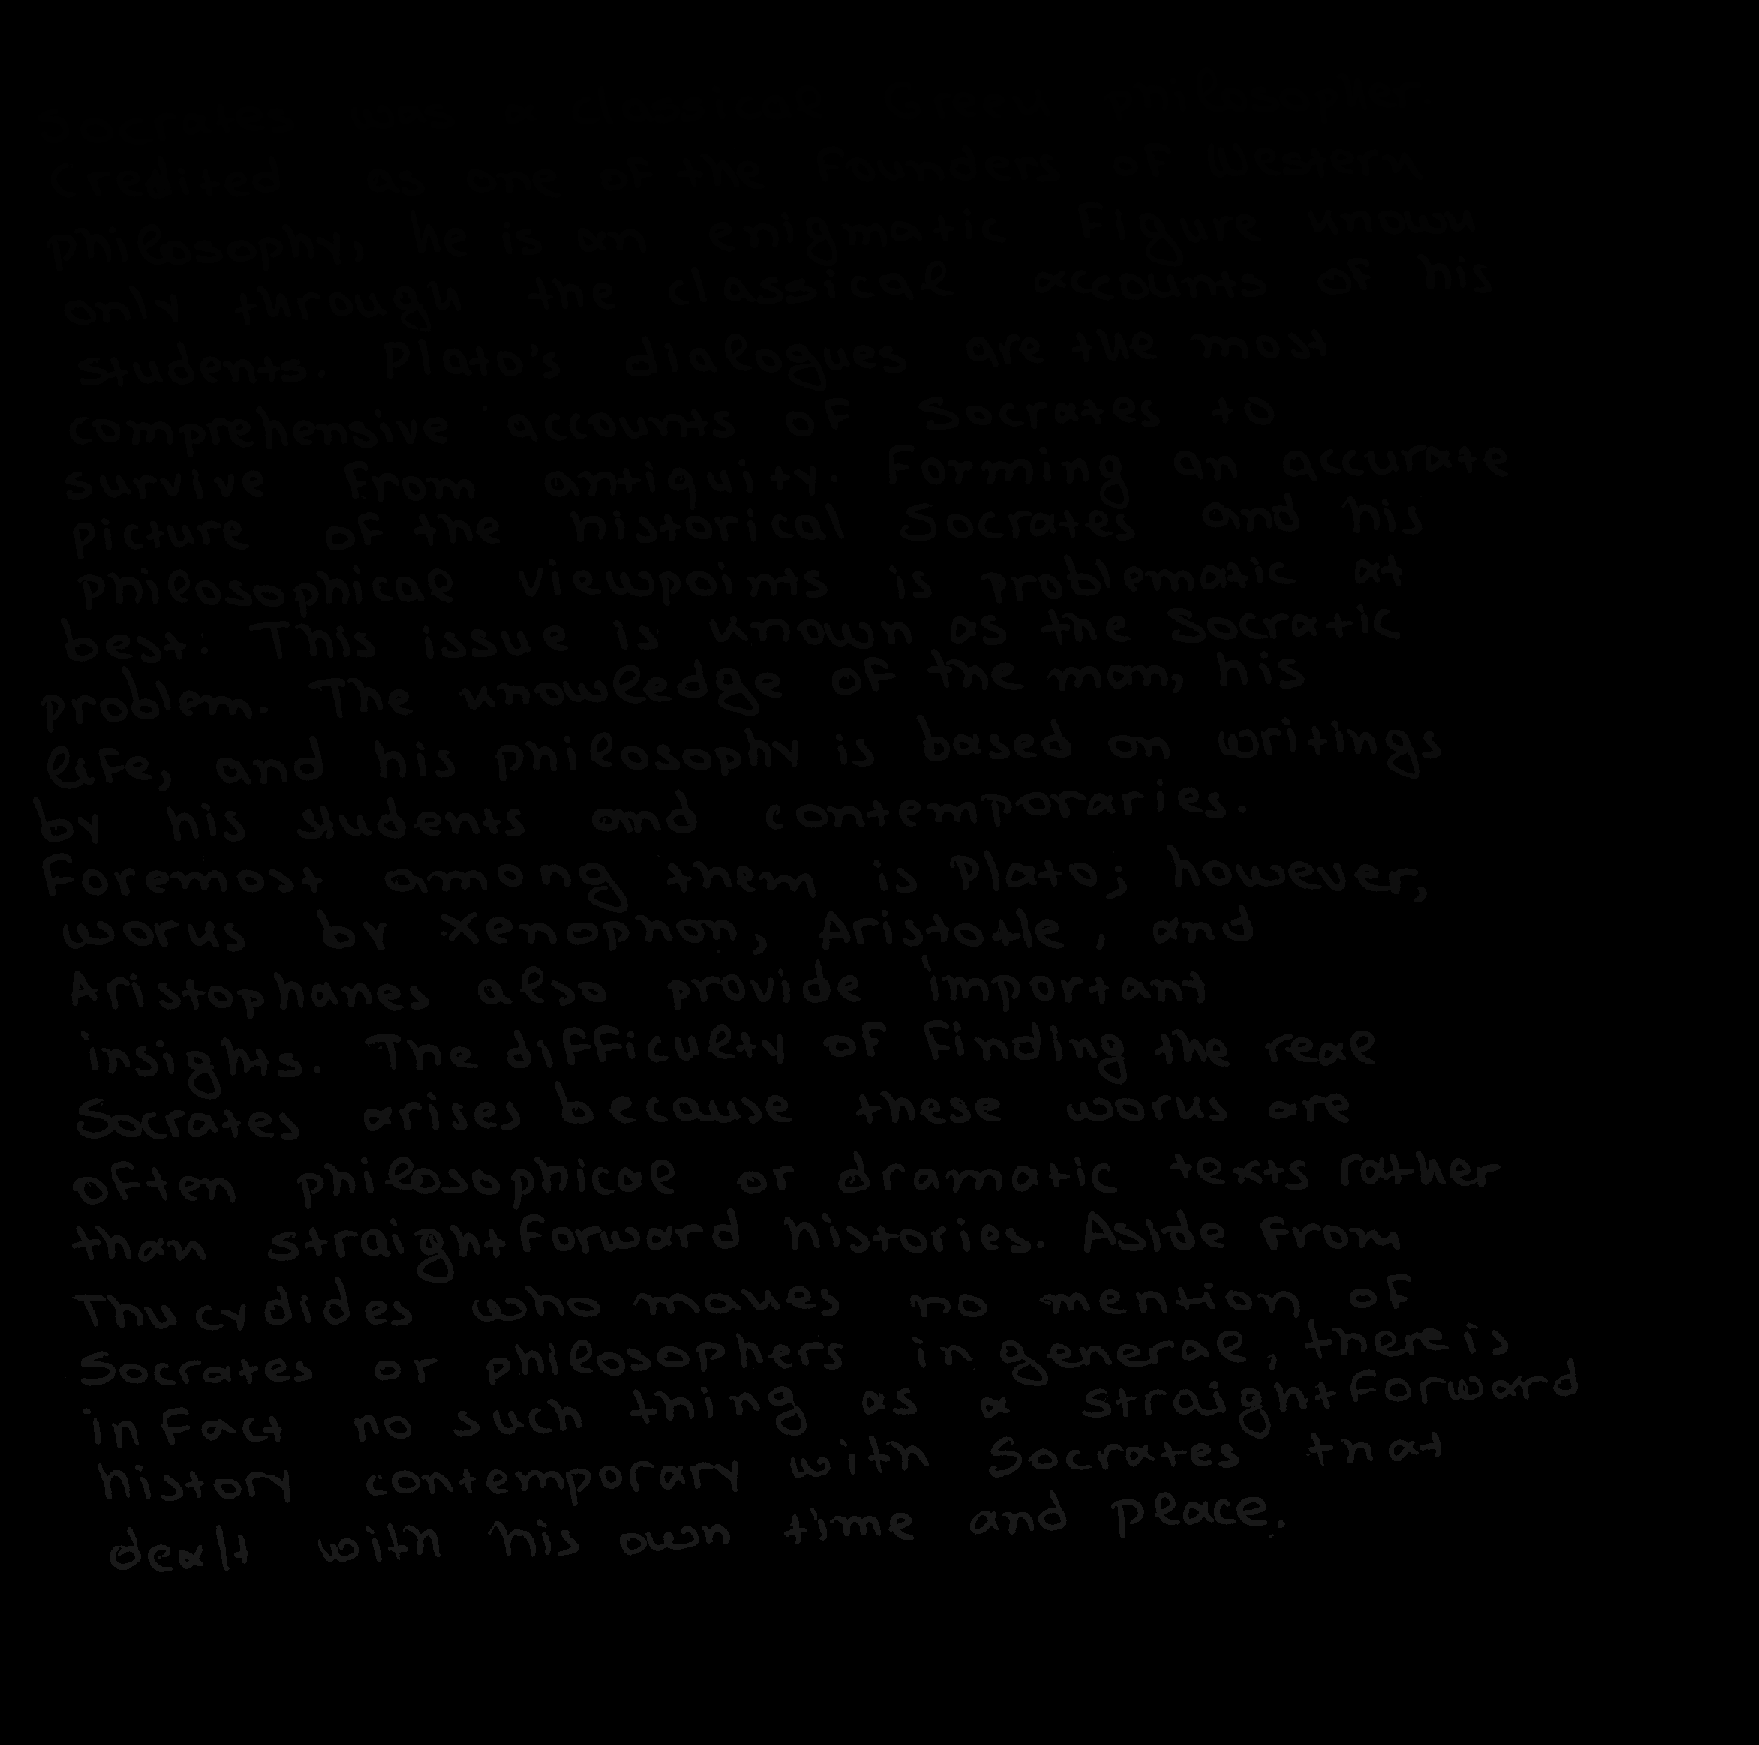 Socrates was a classical Greek philosopher
Credited as one of the Founders of Western
philosophy, he is an enigmatic Figure known
only through the classical accounts of his
students. Plato's dialogues are the most
comprehensive accounts of Socrates to
survive from antiquity. Forming an accurate
picture of the historical Socrates and his
philosophical viewpoints is problematic at
best: This issue is known as the Socratic
problem. The knowledge of the man, his
life, and his philosophy is based on writings
by his students and contemporaries.
Foremost among them is Plato; however,
works by Xenophon, Aristotle, and
Aristophanes also provide important
insights. The difficulty of Finding the real
Socrates arises because these works are
often philosophical or dramatic texts rather
than straightforward histories. Aside From
Thucydides who makes no mention of
Socrates or philosophers in general, there is
in Fact no such thing as a straightforward
history contemporary with Socrates that
dealt with his own time and place.